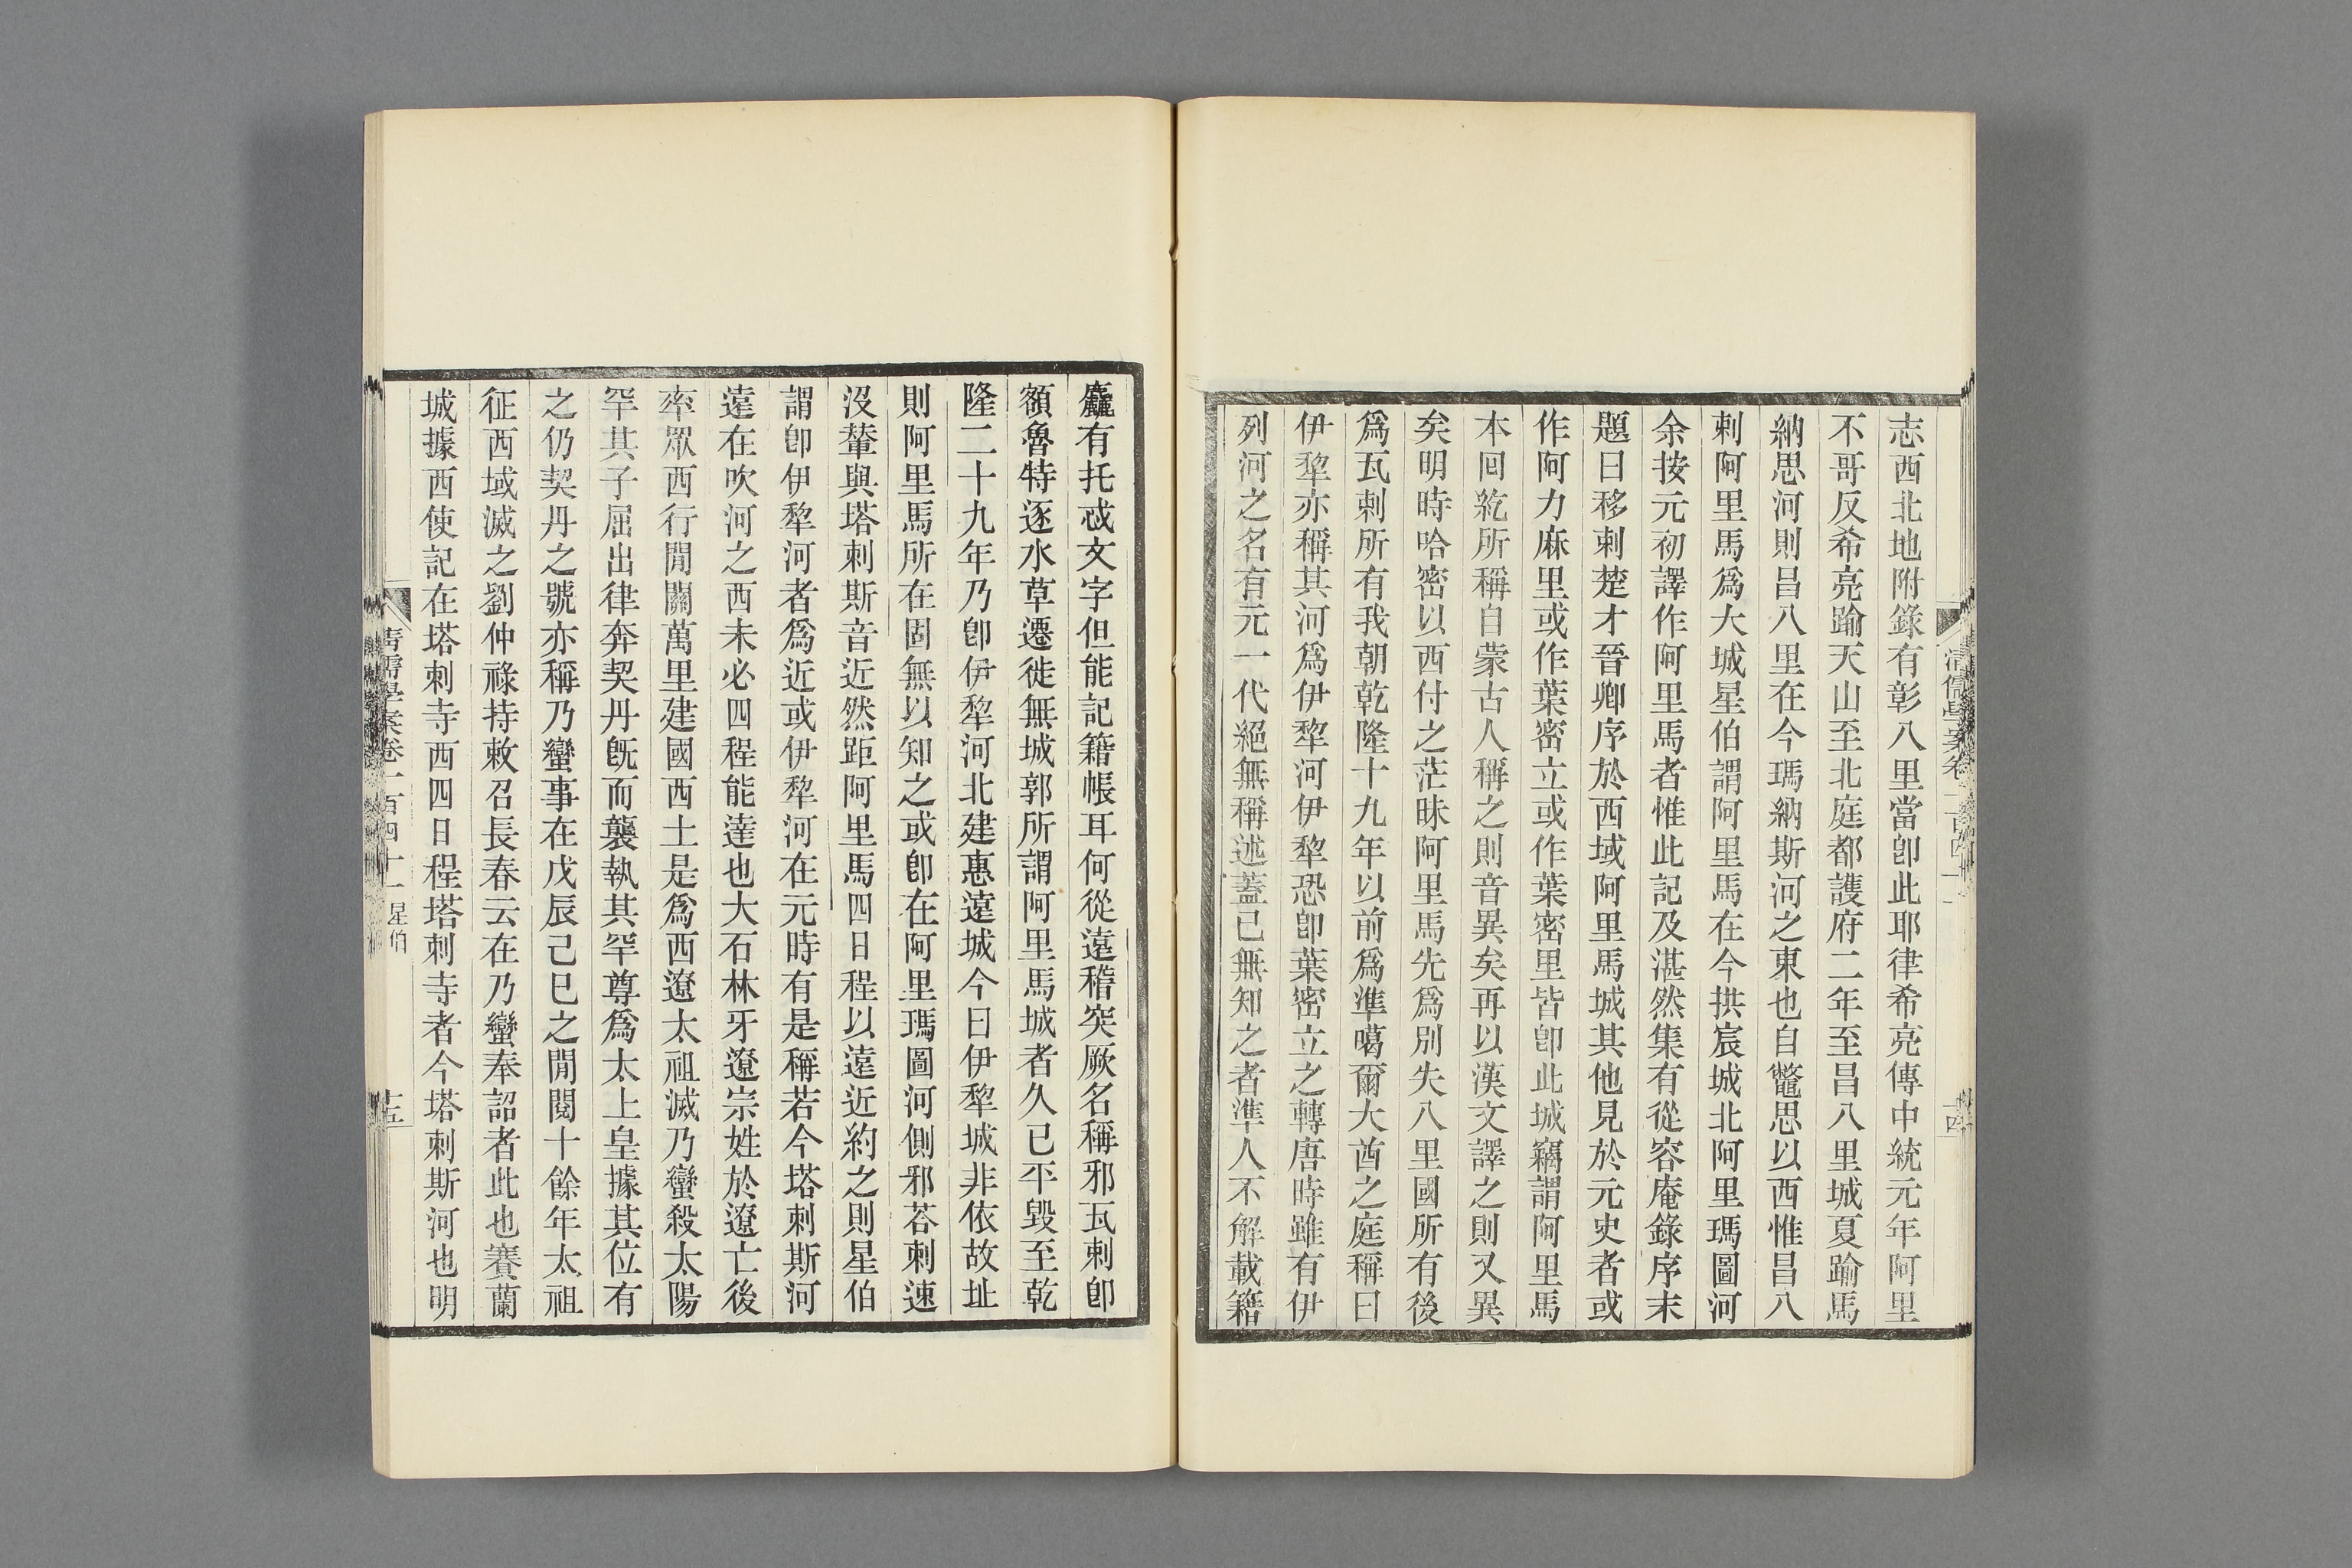 志西北地附錄有彰八里當卽此耶律希亮傳中統元年阿里
不哥反希亮踰天山至北庭都護府二年至昌八里城夏踰馬
納思河則昌八里在今瑪納斯河之東也自鼈思以西惟昌八
剌阿里馬爲大城星伯謂阿里馬在今拱宸城北阿里瑪圖河
余按元初譯作阿里馬者惟此記及湛然集有從容庵錄序末
題曰移剌楚才晉卿序於西域阿里馬城其他見於元史者或
作阿力麻里或作葉密立或作葉密里皆卽此城竊謂阿里馬
本回紇所稱自蒙古人稱之則音異矣再以漢文譯之則又異
矣明時哈密以西付之茫昧阿里馬先爲別失八里國所有後
爲瓦剌所有我朝乾隆十九年以前爲準噶爾大酋之庭稱曰
伊犂亦稱其河爲伊犂河伊犂恐卽葉密立之轉唐時雖有伊
列河之名有元一代絕無稱述蓋已無知之者準人不解載籍
清儒學案卷一百四十一
十四
麤有托忒文字但能記籍帳耳何從遠稽突厥名稱邪瓦剌卽
額魯特逐水草遷徙無城郭所謂阿里馬城者久已平毀至乾
隆二十九年乃卽伊犂河北建惠遠城今日伊犂城非依故址
則阿里馬所在固無以知之或卽在阿里瑪圖河側邪荅剌速
沒輦與塔剌斯音近然距阿里馬四日程以遠近約之則星伯
謂卽伊犂河者爲近或伊犂河在元時有是稱若今塔剌斯河
遠在吹河之西未必四程能達也大石林牙遼宗姓於遼亡後
率眾西行閒關萬里建國西土是爲西遼太祖滅乃蠻殺太陽
罕其子屈出律奔契丹旣而襲執其罕尊爲太上皇據其位有
之仍契丹之號亦稱乃蠻事在戊辰己巳之閒閱十餘年太祖
征西域滅之劉仲祿持敕召長春云在乃蠻奉詔者此也賽蘭
城據西使記在塔剌寺西四日程塔剌寺者今塔剌斯河也明
清儒學案卷一百四十一 星伯
十五